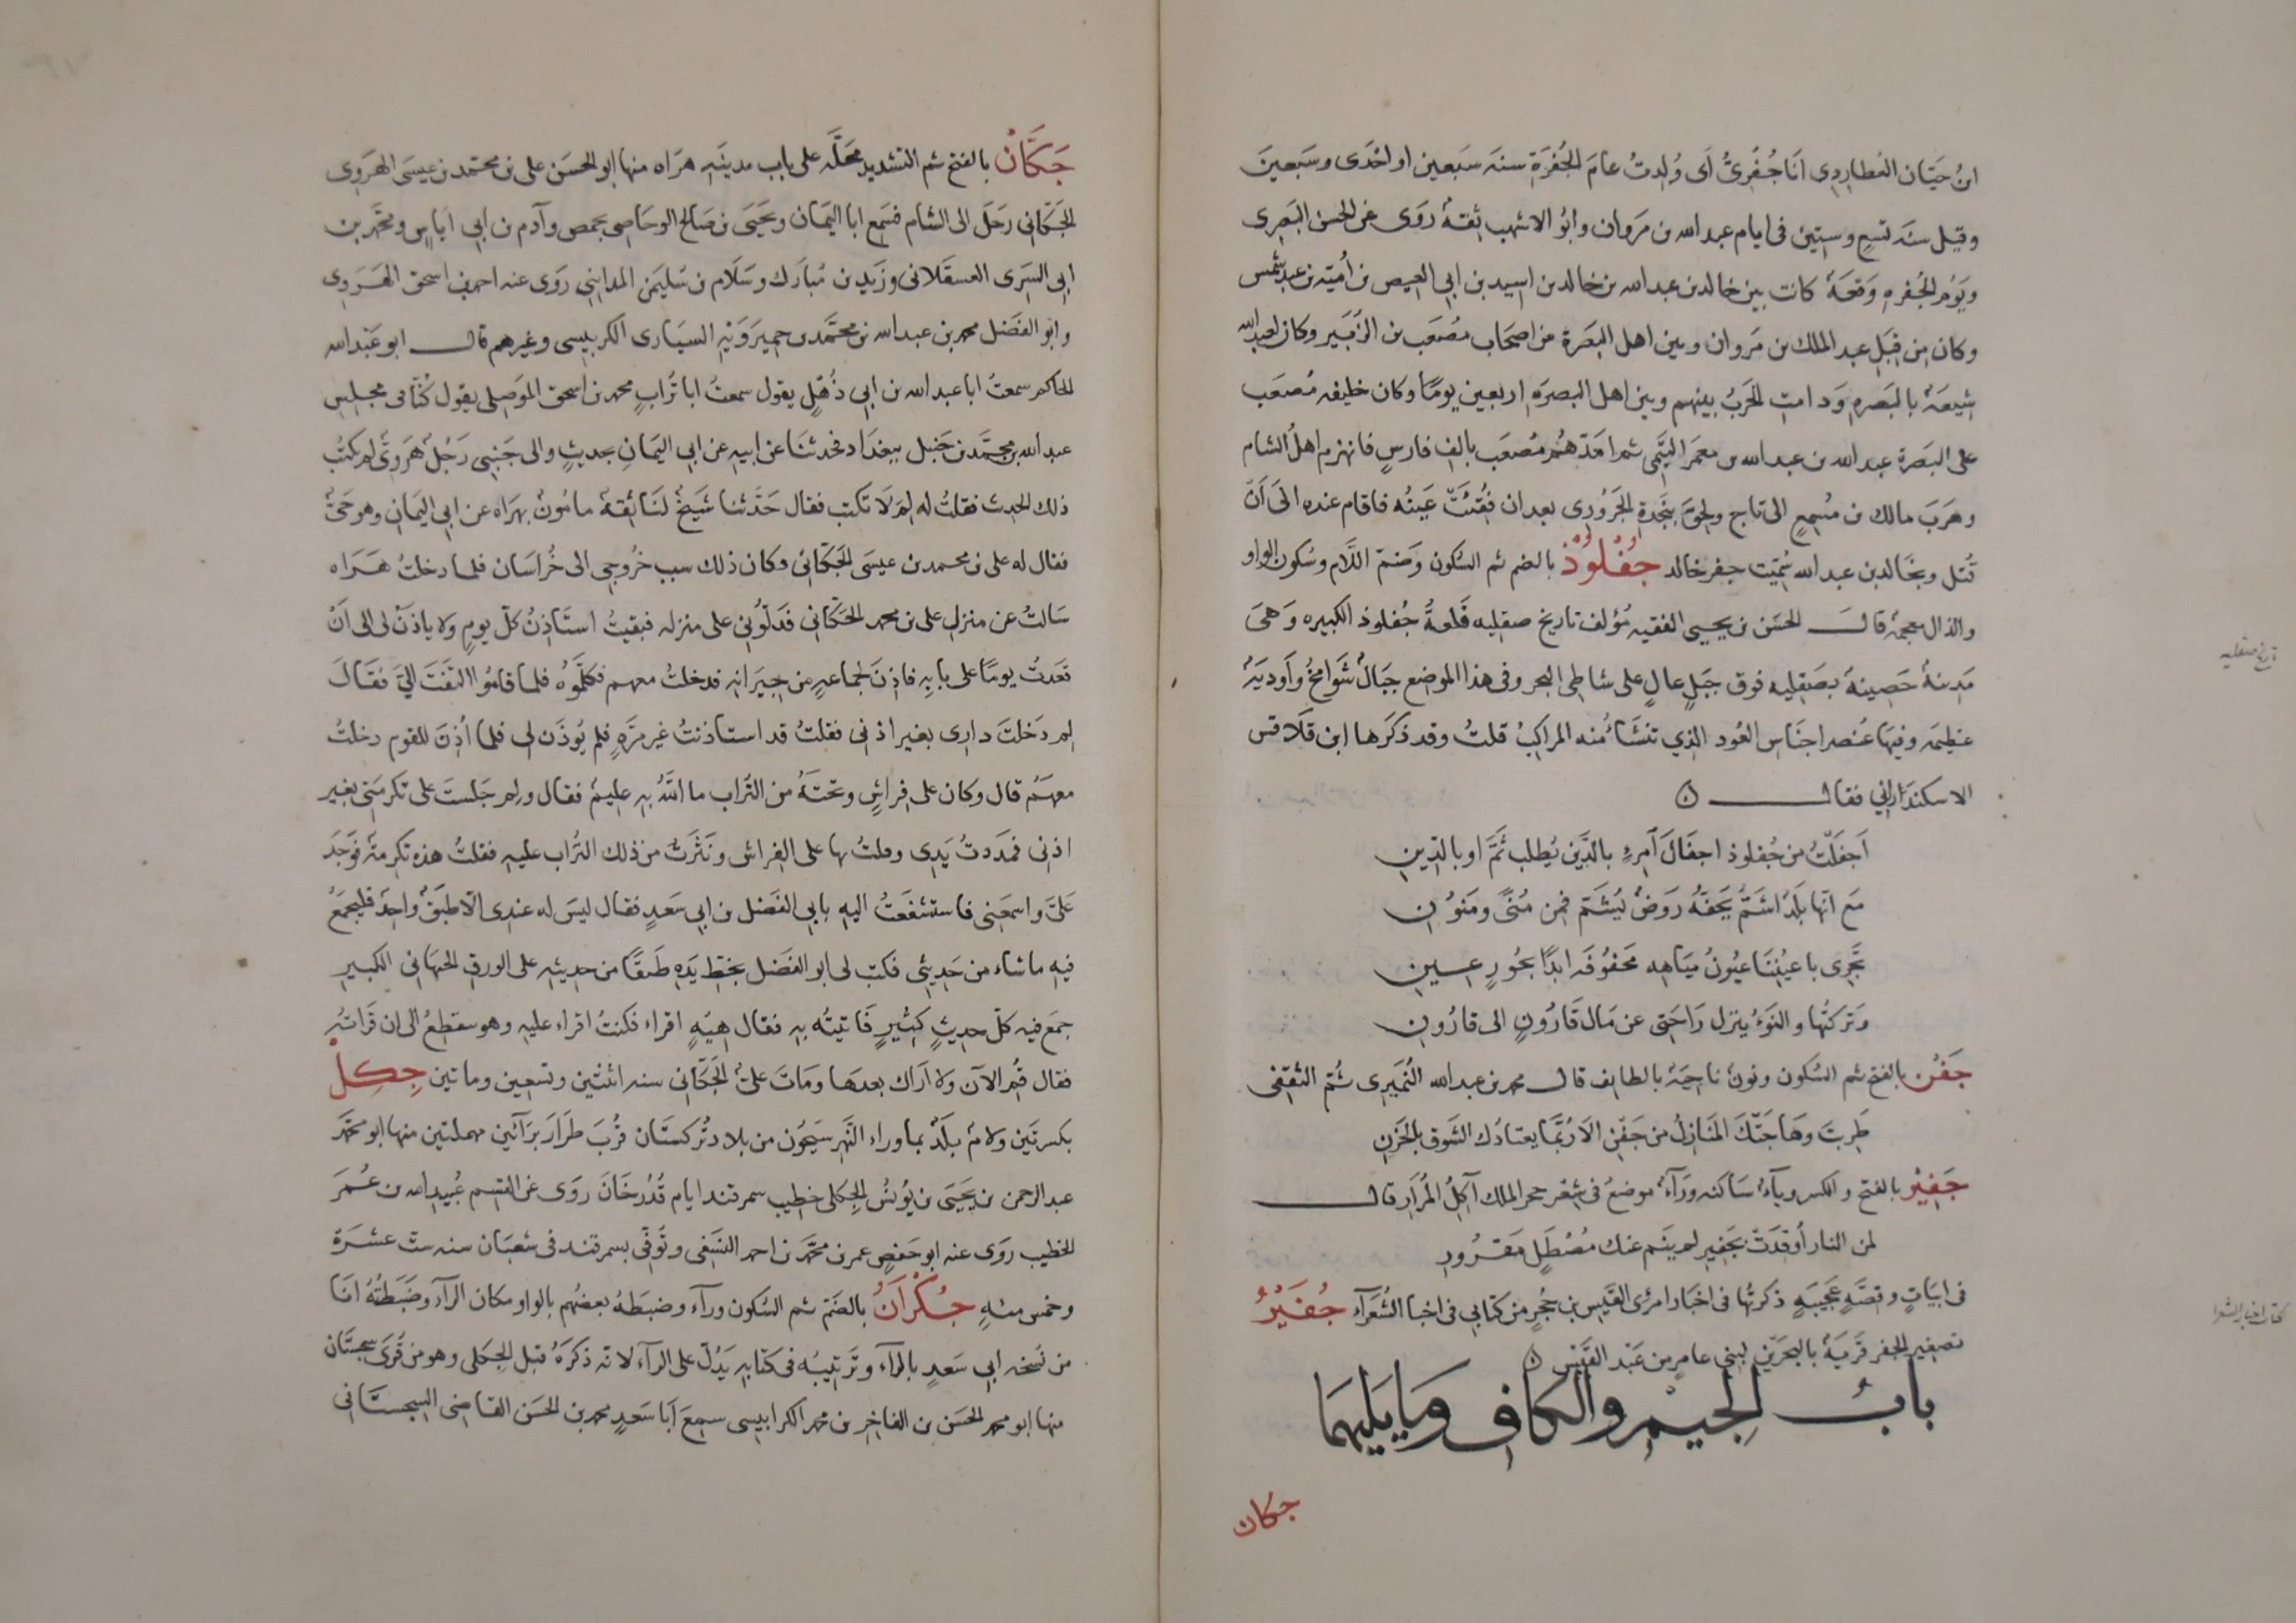 ابنُ حيّان العُطارِدِى انَا جُفْرِىٌّ اى وُلِدتُ عامَ الجُفرَةِ سنة سَبعين او احْدَى وسَبعين
وقيل سنة تسعٍ وستين فى ايام عبد الله بن مَروان وابُو الاشهب ثقةٌ روَى عن الحسن البَصرِى
ويَوْم الجُفره وَقعَةٌ كانت بين خالد بن عبد الله بن خالد بن اسيد بن ابى العيص بن اُميّه بن عبد شمس
وكان من قِبَل عبد الملك بن مَروان وبين اهل البَصرَة من اصحَاب مصُعَب بن الزُبَير وكان لعبد الله
شِيعَةٌ بالبَصره وَدامتِ الحَربُ بينهم وبين اهل البصرَه اربعين يومًا وكان خليفه مُصعَب
على البَصرَة عبد الله بن عبد الله بن معمَر التَّيمى ثم امَدّهُم مُصعَب بالف فارسٍ فانهزم اهلُ الشام
وهَربَ مالك بن مُسمِعٍ الى تاج ولحِقَ بنَجدةِ الحَرُورى بعد ان فُقِئَتْ عَينُه فاقام عنده الىَ اَنْ
قُتل وبخَالد بن عبد الله سُمّيت جفر خالد جُفْلُوُذُ بالضم ثم السُكون وَضمّ اللّام وسُكون الواو
والذال معجمة قال الحسَن بن يحيى الفقيه مُؤلف تاريخ صقليه قَلعةُ جُفلوذ الكبيره وَهىَ
تاريخ صقليه
مَدينةٌ حَصِينةٌ بصَقليه فوق جَبلٍ عالٍ على شاطى البحر وفى هذا الموضع جبَالٌ شَوامخُ وَاَوديَةٌ
عَظِيمة وفيهَا عُنصر اجنَاس العُود الذِي تنشَاءُ منه المراكبُ قلتُ وقد ذكرَها ابن قلَاقس
الاسكندَرانِي فقال
اَجفَلْتُ من جُفلوذ اجفَالَ اَمرءٍ بالدَّين يُطلب ثَمَّ او بالدّينِ
مَع انّها بَلدٌ اشَمُّ يَحفّهُ رَوضٌ يُشَمّ فمِن مُنًى ومَنوُنِ
تَجْرِى باعيُنِنَا عيُونُ ميَاهِه محَفُوفَه ابدًا بحُورٍ عينِ
وَتركتُها والنَوءُ ينزل رَاحَتِى عن مَال قَارُونٍ الى قارُونِ
جَفْنُ بالفتح ثم السُكون ونونٌ ناحِيَةٌ بالطايف قال محمد بن عبد الله النُمَيرِى ثُمّ الثقفى
طَربتَ وهَاجَتكَ المنَازلُ من جَفْنِ الَا رُبَّمَا يعتادُك الشَوق بالحَزنِ
جَفِيْرٌ بالفتح والكسر ويآءٌ سَاكنه ورَآءٌ موضعٌ فى شِعْر حجر الملك آكِلُ المُرَار قال
لمن النار اُوقِدَتْ بجَفِيرٍ لم ينَم عنك مُصْطَلٍ مَقرُورِ
فى ابيَاتٍ وقصَّهٍ عَجيبَهٍ ذكرتُها فى اخبَار امرئ القَيس بن حُجرٍ من كتَابى فى اخبا الشُعَرآء جُفَيْرٌ
كتاب اخبار الشعرا
تصغير الجفر قَريَةٌ بالبحَرَين لبنى عامرٍ من عَبْد القَيْس
بابُ الجِيْمِ والكافِ وَمَا يَلِيهمَا
جكان
جَكَّانُ بالفتح ثم التشديد محَلّه على باب مدينَةِ هرَاه منها ابو الحسَن على بن محمّد بن عيسَى الهَرَوى
الجَكّانِى رَحَلَ الى الشام فسَمِع ابا اليمَان ويَحيَى بن صَالح الوحَاصِى بحمص وآدم بن ابى اياس ومحمّد بن
ابِى السَرِى العسقَلانى وزَيد بن مُبارَك وسَلَام بن سُليمَن المداينى روَى عنه احمد بن اسحق الهَرَوى
وابو الفضَل محمد بن عبد الله بن محمَّد بن حميرَوَيْه السيَارى الكربيسى وغيرهم قال ابو عَبْد الله
الحاكم سمعتُ ابا عبد الله بن ابى ذُهْلٍ يقول سمعتُ ابا تُرابٍ محمد بن اسحق الموَصِلى يقول كُنّا فى مجلس
عبد الله بن محمَّد بن حَنبل ببغدَاد فحَدثنَا عن ابيهِ عن ابى اليمَانِ بحديثٍ والى جَنبِى رَجُلٌ هَروىٌّ لم يكتُب
ذلك الحديث فقلتُ له لِمَ لَا تكتب فقال حَدّثنا شَيخٌ لنَا ثِقةٌ مامُونٌ بهَرَاه عن ابى اليمَانِ وهو حَىٌّ
فقال له على بن محمد بن عيسَى الجَكّانِى وكان ذلك سبب خُروجى الى خُراسَان فلما دخلتُ هَرَاه
سَالتُ عن منزل على بن محمد الجَكّانى فَدَلّونِى على منزله فبقيتُ استَاذِنُ كلّ يومٍ ولا ياذنْ لى الى اَنْ
قَعَدتُ يومًا على بابِهِ فاذِنَ لجماعهٍ من جيرَانِهِ فدخلتُ معهم فكلّمُوهُ فلما قامُوا التفَتَ الىَّ فقَالَ
لم دَخلتَ دارى بغير اذنى فقلتُ قد استاذنتُ غير مَرّهٍ فلم يُوذَن لى فلما اُذِنَ للقوم دخلتُ
معهَمُ قال وكان على فراشٍ وتحتَهُ من التُراب ما اللّهُ بهِ عليمٌ فقال ولِم جَلستَ على تكرمَتى بغير
اذنِى فمَدَدتُ يَدِى وملتُ بها على الفراش ونَثَرتُ من ذلك التُراب عليهِ فقلتُ هذه تكرِمَةٌ فوَجَدَ
عَلىَّ واسمعَنِى فاستشفَعتُ اليهِ بابى الفضَل بن ابى سَعدٍ فقال ليسَ له عندى الّا طبَقٌ واحِدٌ فليجمَعُ
فيه ما شاء من حَديثِى فكتب لى ابو الفضَل بخَطِّ يَدِهِ طبَقًا من حديثِهِ على الورق الكبير
جمَع فيه كلّ حديثٍ كبيرٍ فَاتيتُه بهِ فقال هِيْهٍ اقراء فكنتُ اقراء عليهِ وهو مقطعٌ الى ان قرَاتُه
فقال قُم الآن ولا اَراك بعدهَا ومَاتَ علىُّ الجَكّانى سنه اثنتين وتسعين وماتين جِكِلْ
بكسرتَين ولامٌ بلَدٌ بماوراء النَّهر سَيحُون من بلاد تُركستَان قُربَ طرَار برَآئين مهملتين منها ابو محمّد
عبد الرحمن بن يَحيَى بن يُونسُ الجِكلى خطيب سمرقند ايام قُدُرخَانَ روَى عن القسم عُبيد الله بن عُمَرَ
الخطيب روَى عنه ابو حَفصٍ عمر بن محمّد بن احمد النَسَفِى وتُوفّى بسمرقند فى شعبَان سنه ست عشرَة
وخمس مئهٍ جُكْرَانُ بالضَم ثم السُكون ورآء وضبَطهُ بعضُهم بالواو مكان الرآء وضَبَطتُهُ انَا
من نُسخه ابى سَعدٍ بالرآء وتَرتيبُه فى كتابِهِ يَدُلّ على الرآء لانّه ذكرَهُ قبل الجِكلى وهو من قُرَى سجستَان
منها ابو محمد الحسَن بن الفاخِر بن محمد الكرابيسى سمعَ اَبَا سَعدٍ محمد بن الحسَن القاضِى السِجستَانى